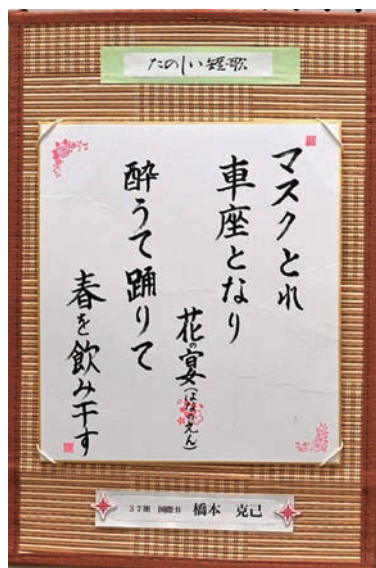 たのしい短歌
マスクとれ
車座となり
花の宴(はなのえん)
酔うて踊りて
春を飲み干す
37期 国際B 橋本 克己